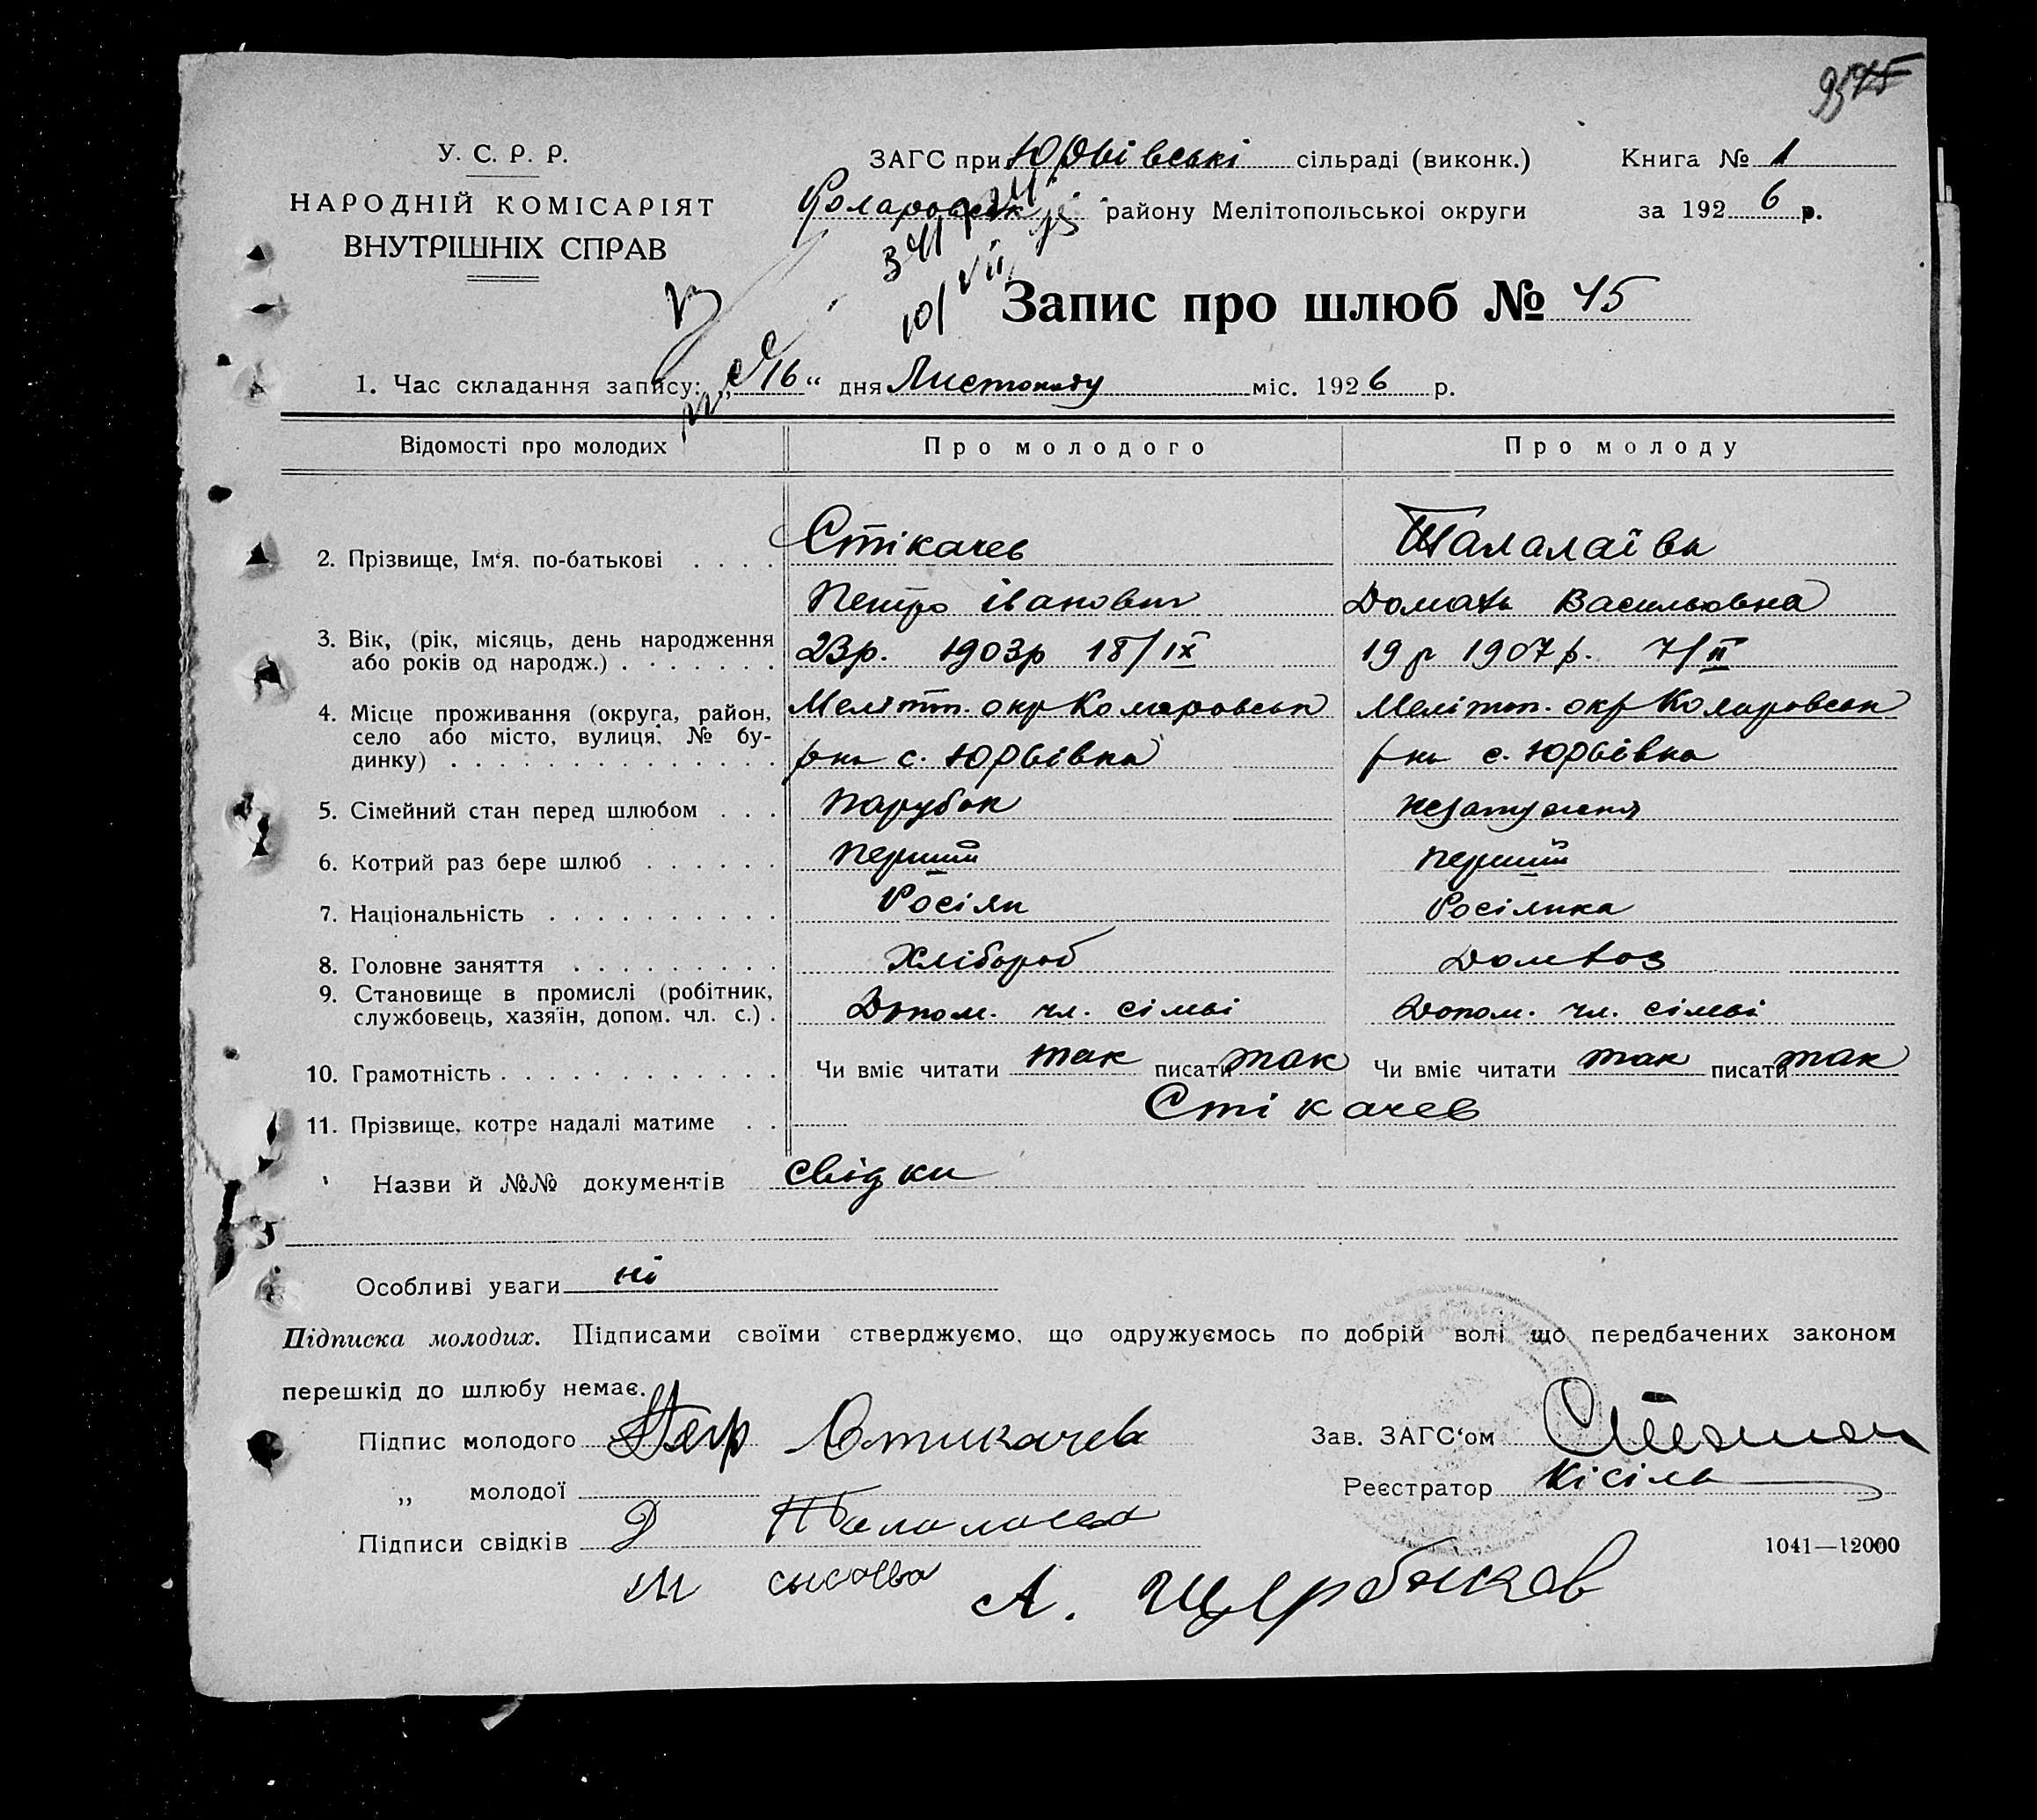 У. С. Р. Р.
НАРОДНІЙ КОМІСАРІЯТ
ВНУТРІШНІХ СПРАВ
ЗАГС при Юрьівські сільраді (виконк.) Книга № 1
Коларовськ району Мелітопольськоі округи за 1926 р.
Запис про шлюб № 45
1. Час складання запису: „16“ дня Листопаду міс. 1926 р.
Відомості про молодих Про молодого Про молоду
2. Прізвище, Ім‘я, по-батькові Стікачев Талалаїва
Петро іванович Домаха Васильовна
3. Вік, (рік, місяць, день народження або років од народж.) 23р. 1903р 18/IX 19р 1907р. 7/II
4. Місце проживання (округа, район, село або місто, вулиця, № будинку) Меліт. окр Коларовськ Меліт. окр Коларовськ
рна с. Юрьівка рна с. Юрьівка
5. Сімейний стан перед шлюбом Парубок незамужня
6. Котрий раз бере шлюб Перший перший
7. Національність Росіян Росіянка
8. Головне заняття Хлібороб Домхоз
9. Становище в промислі (робітник, службовець, хазяїн, допом. чл. с.) Допом. чл. сімьі Допом. чл. сімьі
10. Грамотність Чи вміє читати так писати так Чи вміє читати так писати так
11. Прізвище, котре надалі матиме Стікачев
Назви й №№ документів свідки
Особливі уваги ні
Підписка молодих. Підписами своїми стверджуємо, що одружуємось по добрій волі що передбачених законом
перешкід до шлюбу немає.
Підпис молодого Стикачев Зав. ЗАГС‘ом
„ молодої Реєстратор Кісіль
Підписи свідків Д Талалаева 1041—12000
М А. Щербаков